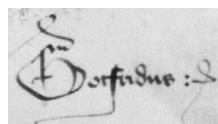 Gotfridus :